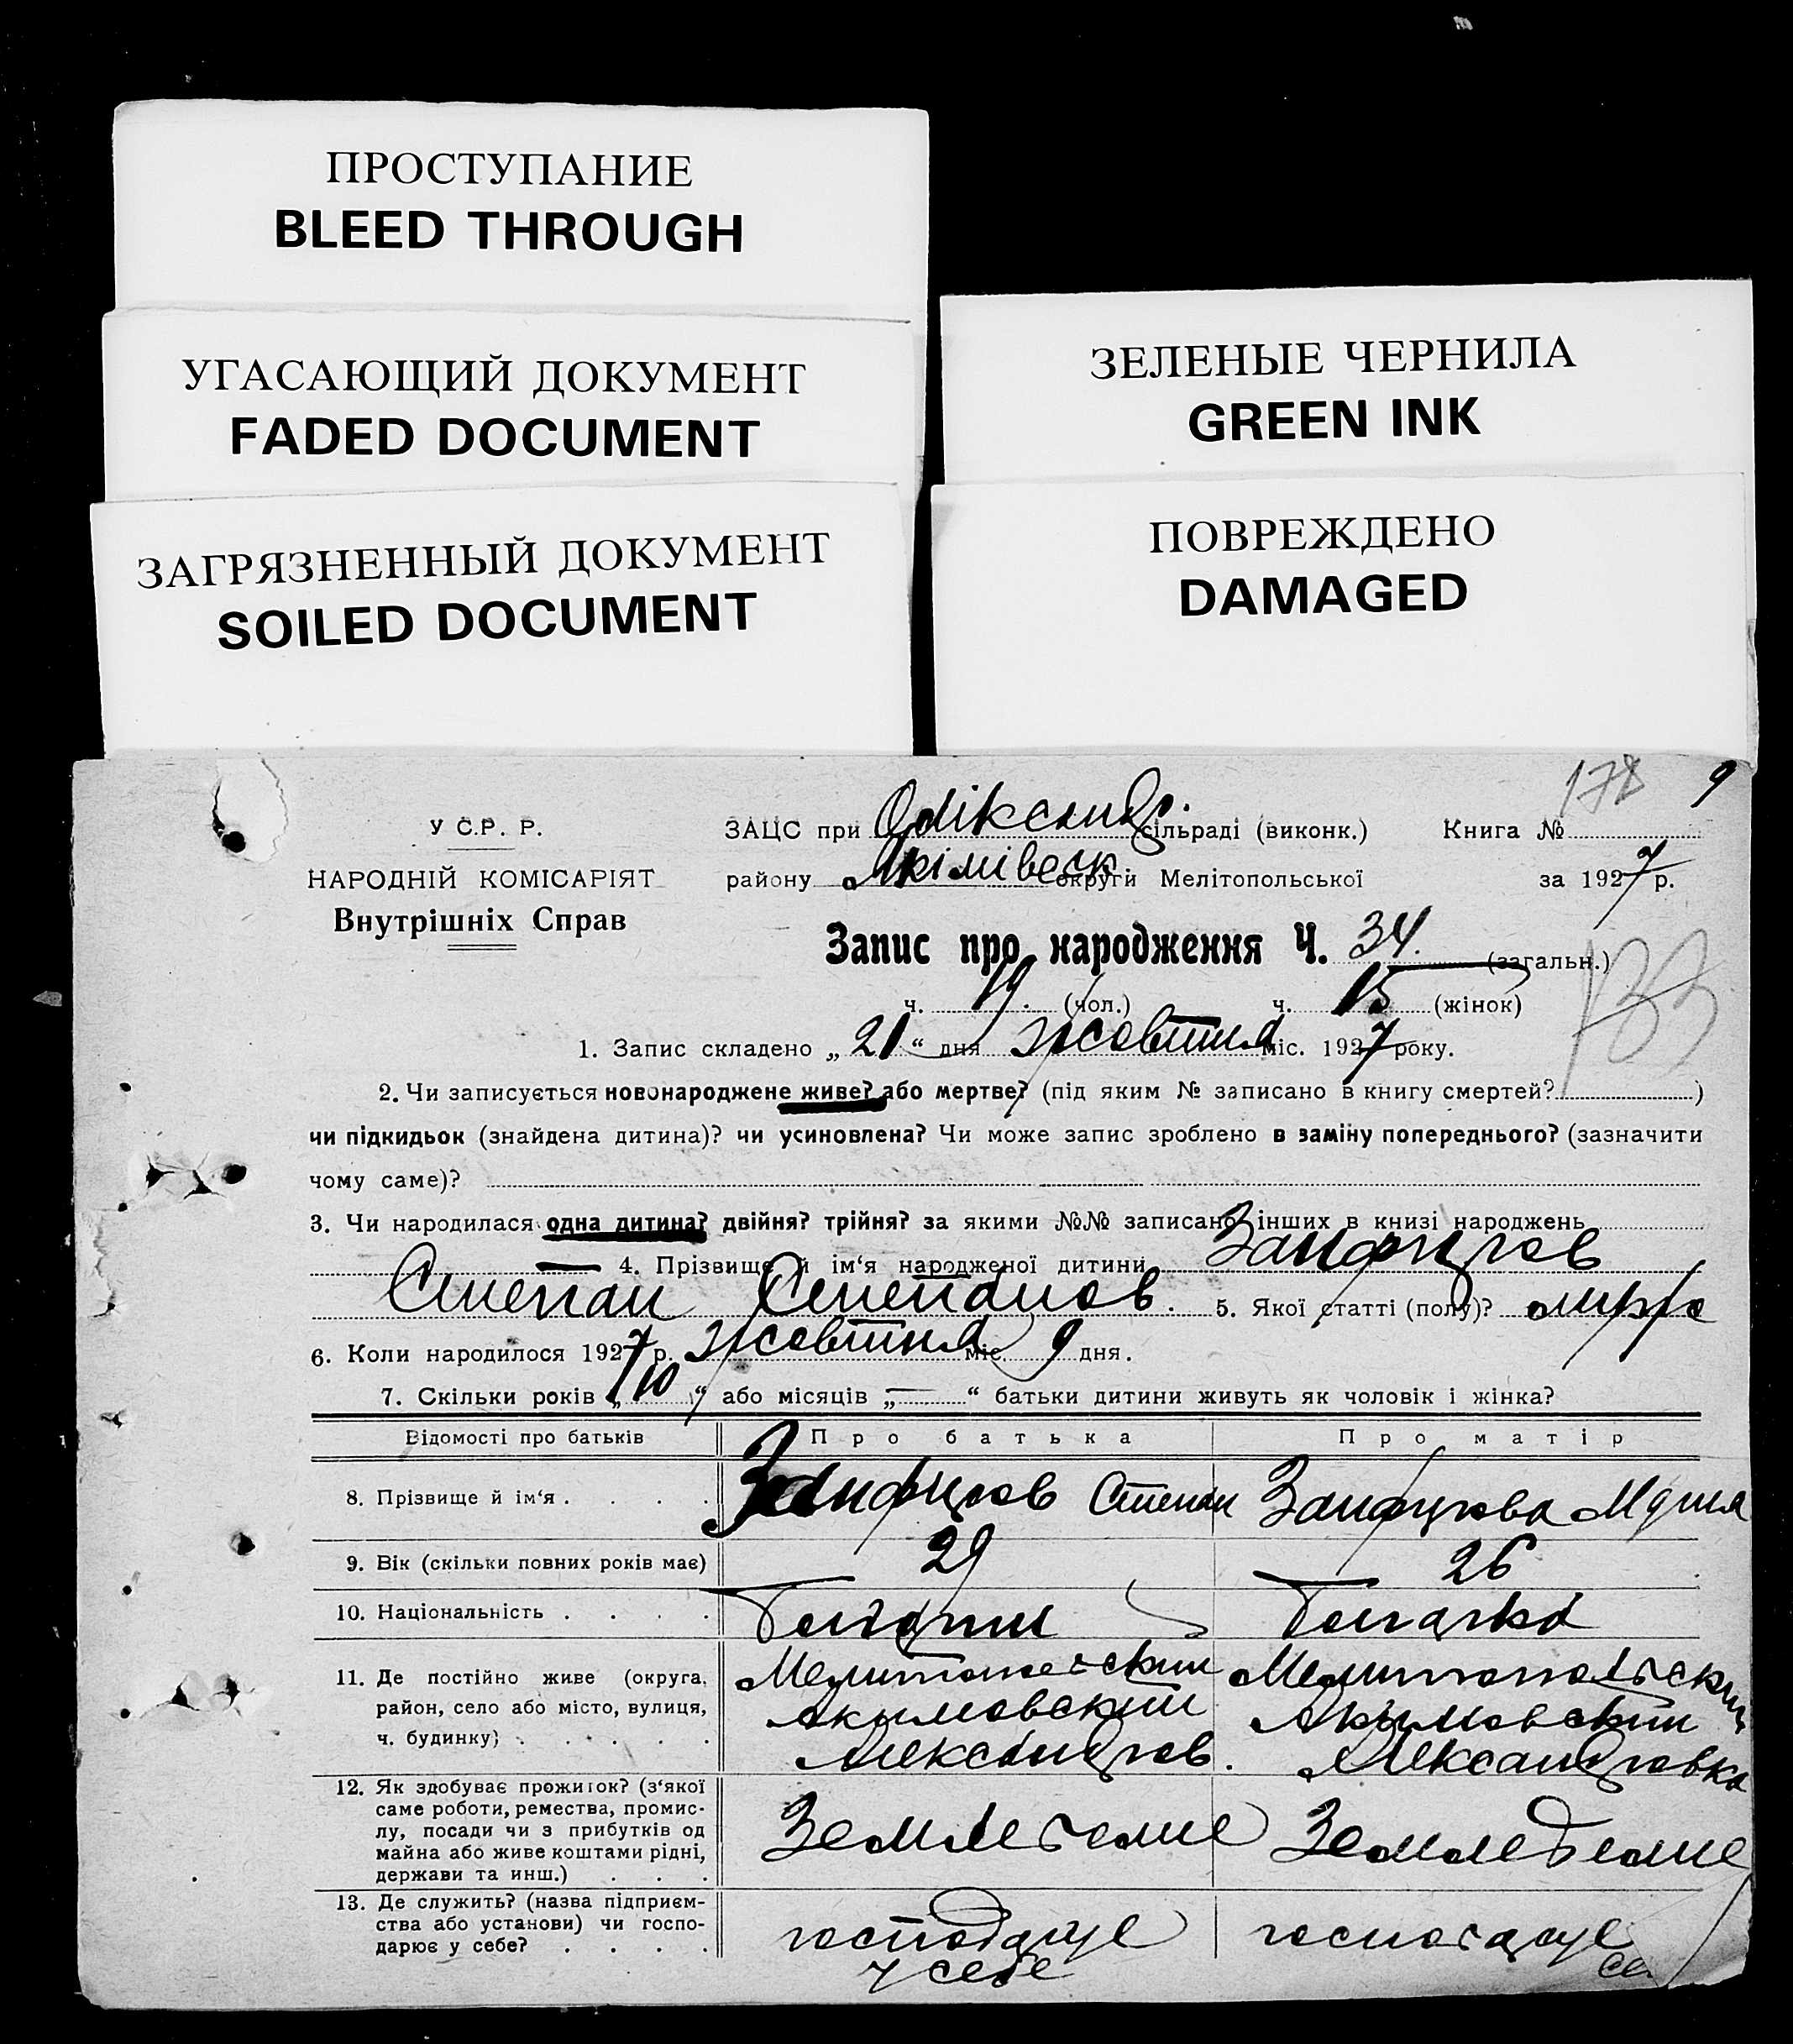 ПРОСТУПАНИЕ
BLEED THROUGH
УГАСАЮЩИЙ ДОКУМЕНТ
FADED DOCUMENT
ЗАГРЯЗНЕННЫЙ ДОКУМЕНТ
SOILED DOCUMENT
ЗЕЛЕНЫЕ ЧЕРНИЛА
GREEN INK
ПОВРЕЖДЕНО
DAMAGED
178 9
У С.Р. Р.
НАРОДНІЙ КОМІСАРІЯТ
Внутрішніх Справ
ЗАЦС при Оліксандр. сільраді (виконк.) Книга №
району Якімівськ. округи Мелітопольської за 1927 р.
Запис про народження Ч. 34. (загальн.)
133
ч. 19. (чол.) ч. 15 (жінок)
1. Запис складено „21“ дня жовтня міс. 1927 року.
2. Чи записується новонароджене живе? або мертве? (під яким № записано в книгу смертей? )
чи підкидьок (знайдена дитина)? чи усиновлена? Чи може запис зроблено в заміну попереднього? (зазначити
чому саме)?
3. Чи народилася одна дитина? двійня? трійня? за якими №№ записано інших в книзі народжень
— 4. Прізвище й ім‘я народженої дитини
Степан Степанов. 5. Якої статті (полу)?
6. Коли народилося 1927 р. жовтня міс. 9 дня.
7. Скільки років „10“ або місяців „—“ батьки дитини живуть як чоловік і жінка?
Відомості про батьків Про батька Про матір
8. Прізвище й ім‘я . . . . Степан
9. Вік (скільки повних років має) 29 26
10. Національність . . . .
11. Де постійно живе (округа, район, село або місто, вулиця, ч. будинку) . . . . . .
Мелитопольский
Акимовский
Александров.
Мелитопольский
Акимовский
Александровка
12. Як здобуває прожиток? (з‘якої саме роботи, ремества, промислу, посади чи з прибутків од майна або живе коштами рідні, держави та инш.) . . .
Земледелие
Земледелие
13. Де служить? (назва підприємства або установи) чи господарює у себе? . . . .
господарує
у себе
господарує